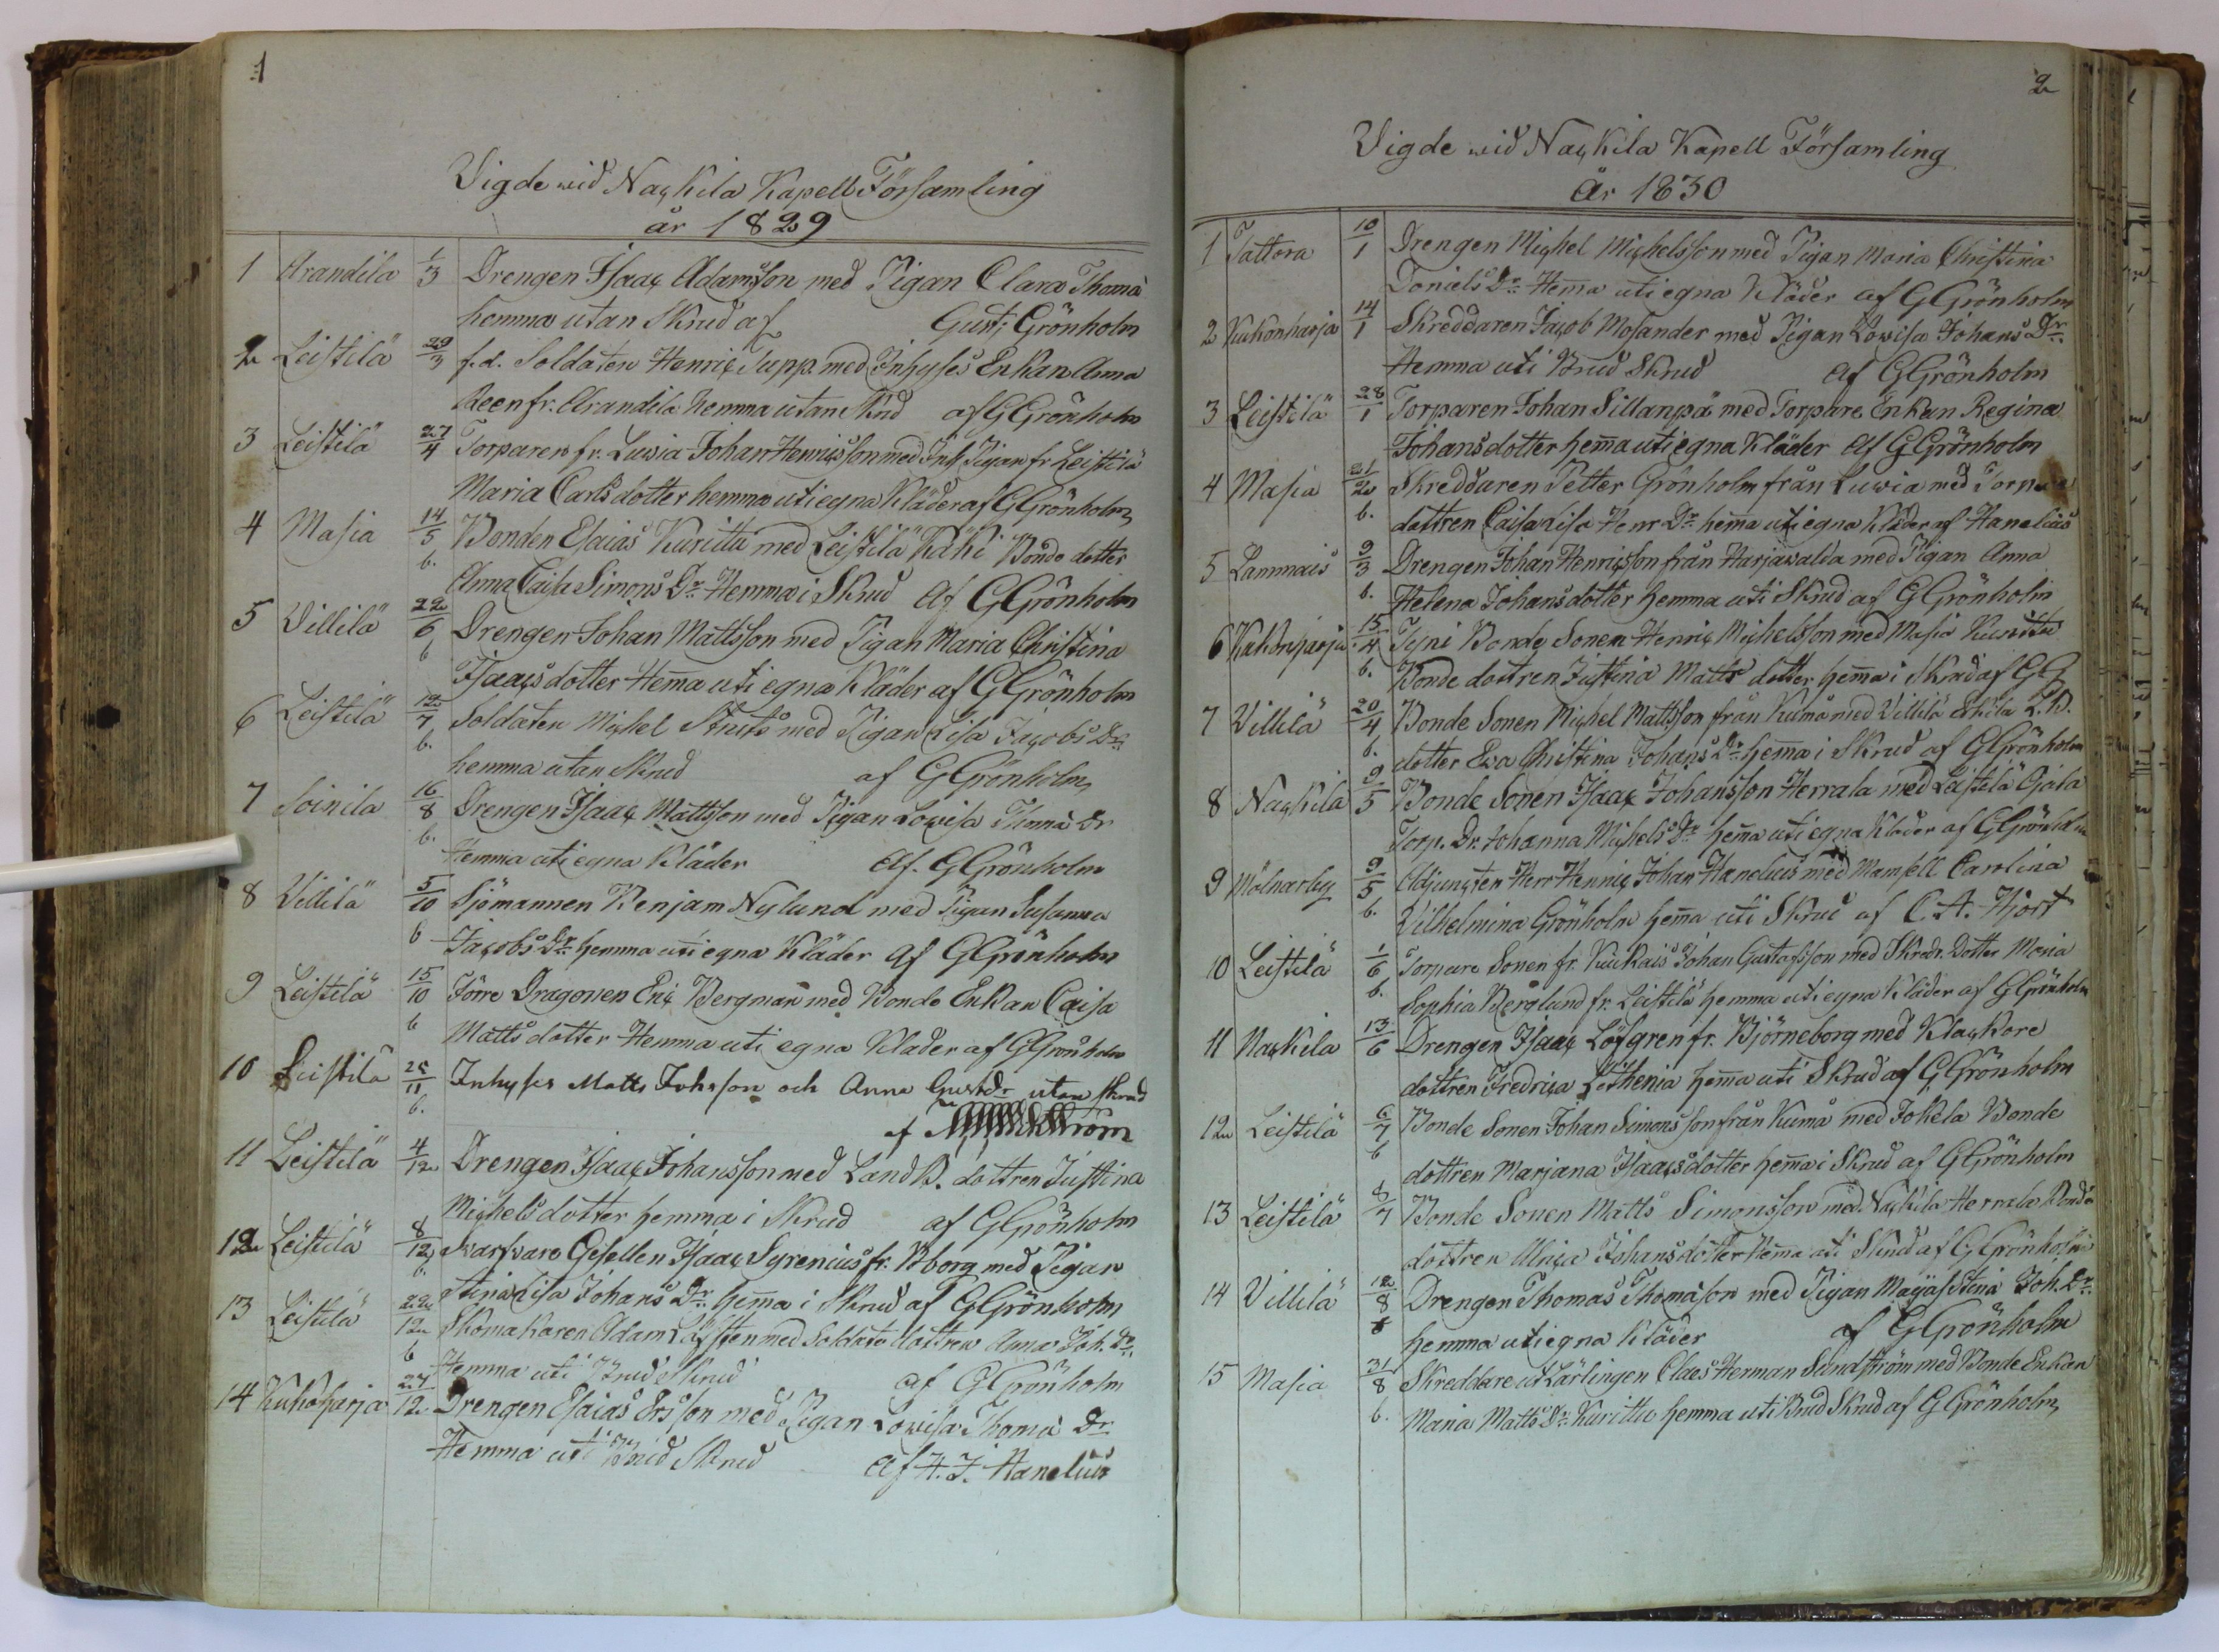 1
Vigde wid Nackila Kapell Församling
år 1829
1 Arandila 1/3 Drengen Isaac Adamsson med Pigan Clara Thoma
hemma utan Skrud af Gust; Grönholm
2 Leistilä 29/3 f.d. Soldaten Henric Tupp med Inhyses Enkan Anna
fr. Arandila hemma utan Skrud af G Grönholm
3 Leistilä 27/4 Torparen fr. Luvia Johan Henricsson med Inh Pigan fr Leistilä
Maria Carlsdotter hemma uti egna Kläder af G Grönholm
4 Masia 14/5 Bonden Esaias Kuritta med Leistilä Käki Bonde dotter
b. Anna Caisa Simons Dr Hemma i Skrud af G Grönholm
5 Villilä 22/6 Drengen Johan Mattsson med Pigan Maria Christina
b Isaacsdotter Hema uti egna Kläder af G Grönholm
6 Leistilä 12/7 Soldaten Michel Struts med Pigan Lisa Jacobs Dr
b. hemma utan Skrud af G Grönholm
7 Soinila 16/8 Drengen Isaac Mattsson med Pigan Lovisa Thoma Dr
b. Hemma uti egna Kläder af. G Grönholm
8 Villilä 5/10 Sjömannen Benjam Nylund med Pigan Susanna
b Jacobs Dr hemma uti egna Kläder af G Grönholm
9 Leistilä 15/10 Förre Dragonen Eric Bergman med Bonde Enkan Caisa
b Mattsdotter Hemma uti egna Kläder af G Grönholm
10 Leistilä 25/11 Inhyses Matts Johsson och Anna Gustdr utan skrud
b. af
11 Leistilä 4/12 Drengen Isaac Johansson med Land B. dottren Justina
Michelsdotter hemma i Skrud af G Grönholm
12 Leistilä 8/12 Svarfvare Gesellen Isaac Syrenius fr. Bborg med Pigan
b. Stina Lisa Johans Dr hema i Skrud af G Grönholm
13 Leistilä 22/12 Skomakaren Adam Löfsten med Soldats dottren Anna Joh. Dr
b Hemma uti Brud Skrud af G Grönholm
14 Kukoharja 27/12 Drengen Esaias Ersson med Pigan Lovisa Thoma Dr
Hemma uti Brud Skrud af H. J. Hanelius
2
Vigde wid Nackila Kapell Församling
år 1830
1 Tattora 10/1 Drengen Michel Michelsson med Pigan Maria Christina
Daniels Dr Hema uti egna Kläder af G Grönholm
2 Kukonharja 14/1 Skreddaren Jacob Mosander med Pigan Lovisa Johans Dr
Hemma uti Brud Skrud af G Grönholm
3 Leistilä 28/1 Torparen Johan Sillanpä med Torpare Enkan Regina
Johansdotter hema uti egna Kläder af G Grönholm
4 Masia 21/2 Skreddaren Petter Grönholm från Luvia med Torpare
b. dottren Caisa Lisa Henr Dr hema uti egna Kläder af Hanelius
5 Lammais 9/3 Drengen Johan Henricsson från Harjavalda med Pigan Anna
b. Helena Johansdotter hemma uti Skrud af G Grönholm
6 Kukonharja 15/4 Tyni Bonde Sonen Henric Michelsson med Masia Kuritta
b. Bonde dottren Justina Matts dotter hema i Skrud af G G
7 Villilä 20/4 Bonde Sonen Michel Mattsson från Kumå med Villilä Erkilä L.B.
b. dotter Eva Christina Johans Dr hema i Skrud af G Grönholm
8 Nackila 9/5 Bonde Sonen Isaac Johansson Herrala med Leistilä Ojala
Torp. Dr. Johanna Michels Dr hema uti egna Kläder af G Grönholm
9 Molnarby 9/5 Adjuncten Herr Henric Johan Hanelius med Mamsell Carolina
b. Vilhelmina Grönholm hema uti Skrud af C. A. Hjort
10 Leistilä 1/6 Torpare Sonen fr. Kuckais Johan Gustafsson med Skredr. Dotter Maria
b. Sophia Berglund fr. Leistilä hemma uti egna Kläder af G Grönholm
11 Nackila 13/6 Drengen Isaac Löfgren fr. Björneborg med Klackare
dottren Fredrica Lethenia hema uti Skrud af G Grönholm
12 Leistilä 6/7 Bonde Sonen Johan Simonsson från Kumå med Jokela Bonde
b dottren Marjana Isaacsdotter hema i Skrud af G Grönholm
13 Leistilä 8/7 Bonde Sonen Matts Simonsson med Nackila Herrala Bonde
dottren Ulrica Johansdotter Hema uti Skrud af G Grönholm
14 Villilä 12/8 Drengen Thomas Thomasson med Pigan Majastina Joh. Dr
b hemma uti egna Kläder af G Grönholm
15 Masia 31/8 Skreddare Lärlingen Claes Herman Sundström med Bonde Enkan
b. Maria Matts Dr Kuritta hemma uti Brud Skrud af G Grönholm